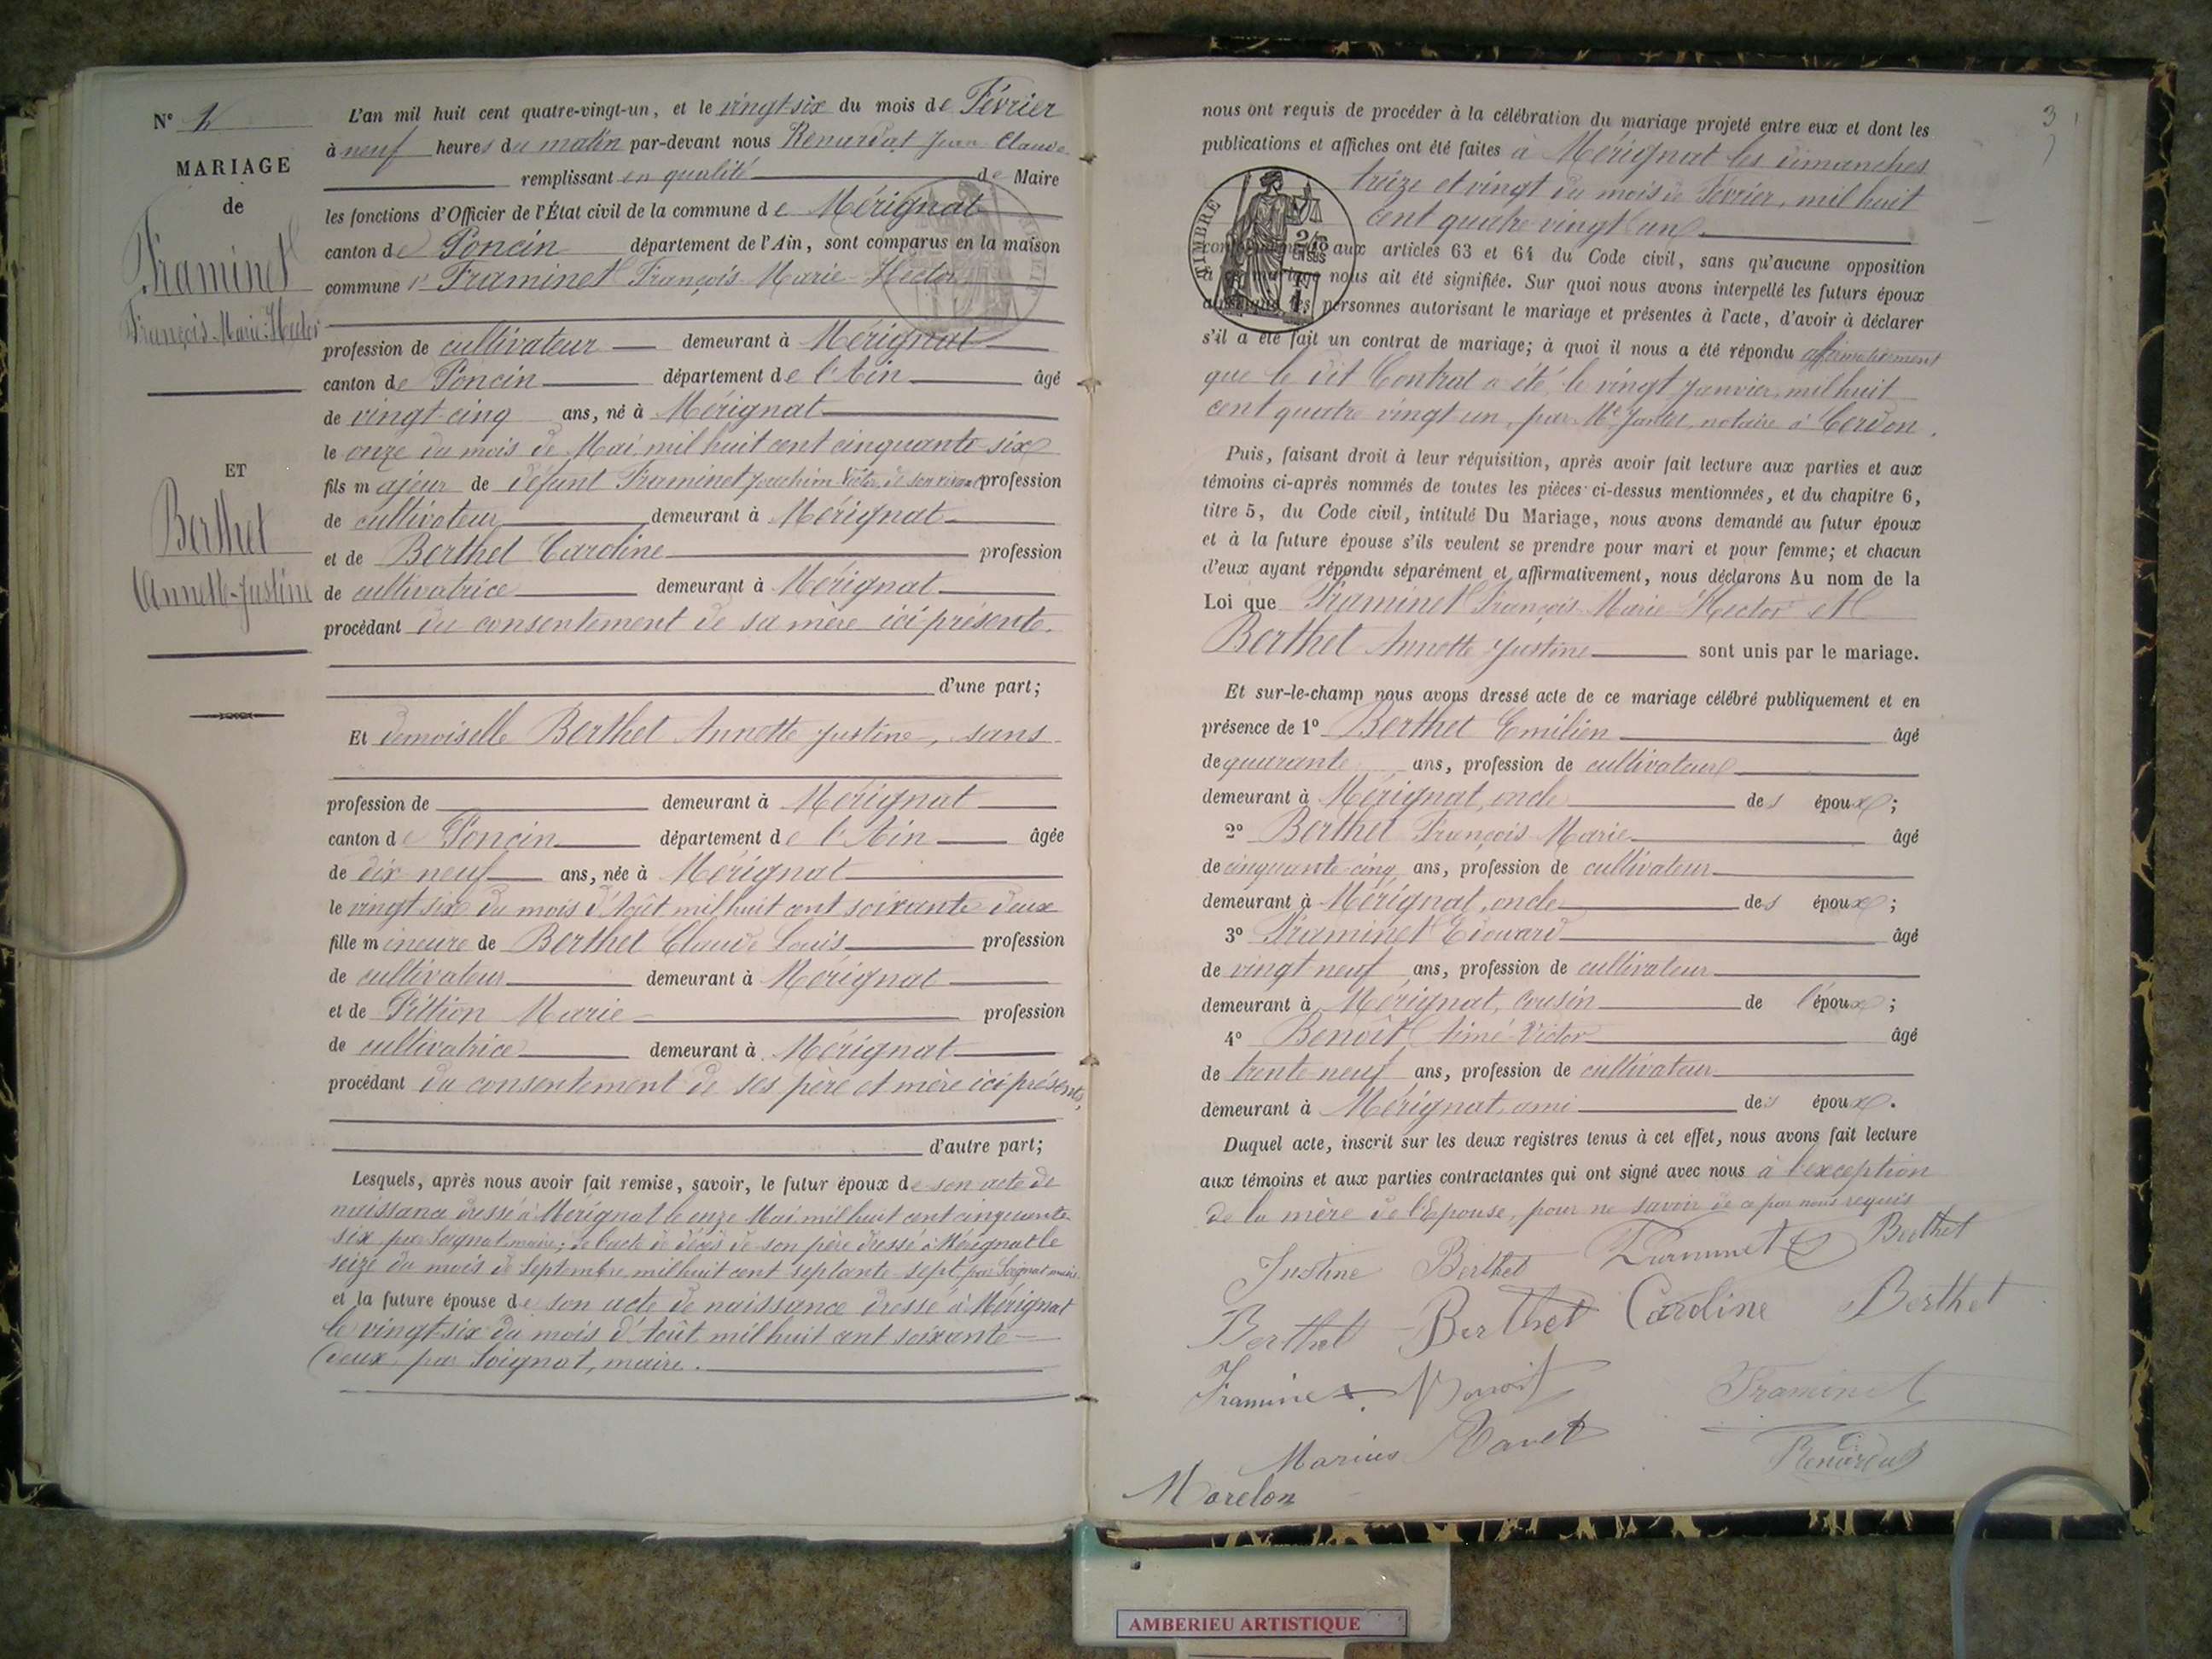 N° 2
MARIAGE
de
Framinet
François-Marie-Hector
ET
Berthet
Annette-Justine
L'an mil huit cent quatre-vingt-un, et le vingt-six du mois de Février
à neuf heures du matin par-devant nous Renardat Jean Claude
remplissant en qualité de Maire
les fonctions d'Officier de l'État civil de la commune de Mérignat
canton de Poncin département de l'Ain, sont comparus en la maison
commune Framinet François-Marie-Hector
profession de cultivateur demeurant à Mérignat
canton de Poncin département de l'Ain âgé
de vingt-cinq ans, né à Mérignat
le onze du mois de Mai mil huit cent cinquante six
fils majeur de défunt Framinet Joachim Victor, de son vivant profession
de cultivateur demeurant à Mérignat
et de Berthet Caroline profession
de cultivatrice demeurant à Mérignat
procédant du consentement de sa mère ici présente.
d'une part;
Et demoiselle Berthet Annette Justine, sans
profession de demeurant à Mérignat
canton de Poncin département de l'Ain âgée
de dix neuf ans, née à Mérignat
le vingt six du mois d'Août mil huit cent soixante deux
fille mineure de Berthet Claude Louis profession
de cultivateur demeurant à Mérignat
et de Pittion Marie profession
de cultivatrice demeurant à Mérignat
procédant du consentement de ses père et mère ici présents,
d'autre part;
Lesquels, après nous avoir fait remise, savoir, le futur époux de son acte de
naissance dressé à Mérignat le onze Mai mil huit cent cinquante
six par Soignat, maire; de l'acte de décès de son père dressé à Mérignat le
seize du mois de Septembre mil huit cent septante sept, par Soignat maire
et la future épouse de son acte de naissance dressé à Mérignat
le vingt-six du mois d'Août mil huit cent soixante
deux, par Soignat, maire.
3
nous ont requis de procéder à la célébration du mariage projeté entre eux et dont les
publications et affiches ont été faites à Mérignat les dimanches
treize et vingt du mois de Février, mil huit
cent quatre vingt un
TIMBRE
aux articles 63 et 64 du Code civil, sans qu'aucune opposition
nous ait été signifiée. Sur quoi nous avons interpellé les futurs époux
personnes autorisant le mariage et présentes à l'acte, d'avoir à déclarer
s'il a été fait un contrat de mariage; à quoi il nous a été répondu affirmativement
que le dit Contrat a été le vingt Janvier mil huit
cent quatre vingt un, par Me notaire à Cerdon.
Puis, faisant droit à leur réquisition, après avoir fait lecture aux parties et aux
témoins ci-après nommés de toutes les pièces ci-dessus mentionnées, et du chapitre 6,
titre 5, du Code civil, intitulé Du Mariage, nous avons demandé au futur époux
et à la future épouse s'ils veulent se prendre pour mari et pour femme; et chacun
d'eux ayant répondu séparément et affirmativement, nous déclarons Au nom de la
Loi que Framinet François-Marie-Hector et
Berthet Annette Justine sont unis par le mariage.
Et sur-le-champ nous avons dressé acte de ce mariage célébré publiquement et en
présence de 1° Berthet Emilien âgé
de quarante ans, profession de cultivateur
demeurant à Mérignat, oncle des époux;
2° Berthet François Marie âgé
de cinquante-cinq ans, profession de cultivateur
demeurant à Mérignat, oncle des époux;
3° Framinet Edouard âgé
de vingt neuf ans, profession de cultivateur
demeurant à Mérignat, cousin de l'époux;
4° Benoît Aimé-Victor âgé
de trente neuf ans, profession de cultivateur
demeurant à Mérignat, ami des époux.
Duquel acte, inscrit sur les deux registres tenus à cet effet, nous avons fait lecture
aux témoins et aux parties contractantes qui ont signé avec nous à l'exception
de la mère de l'Epouse, pour ne savoir de ce par nous requis
Justine Berthet Framinet Berthet
Berthet Berthet Caroline Berthet
Framinet Benoit Framinet
Marius Ravet Renardat
Morelon
AMBERIEU ARTISTIQUE